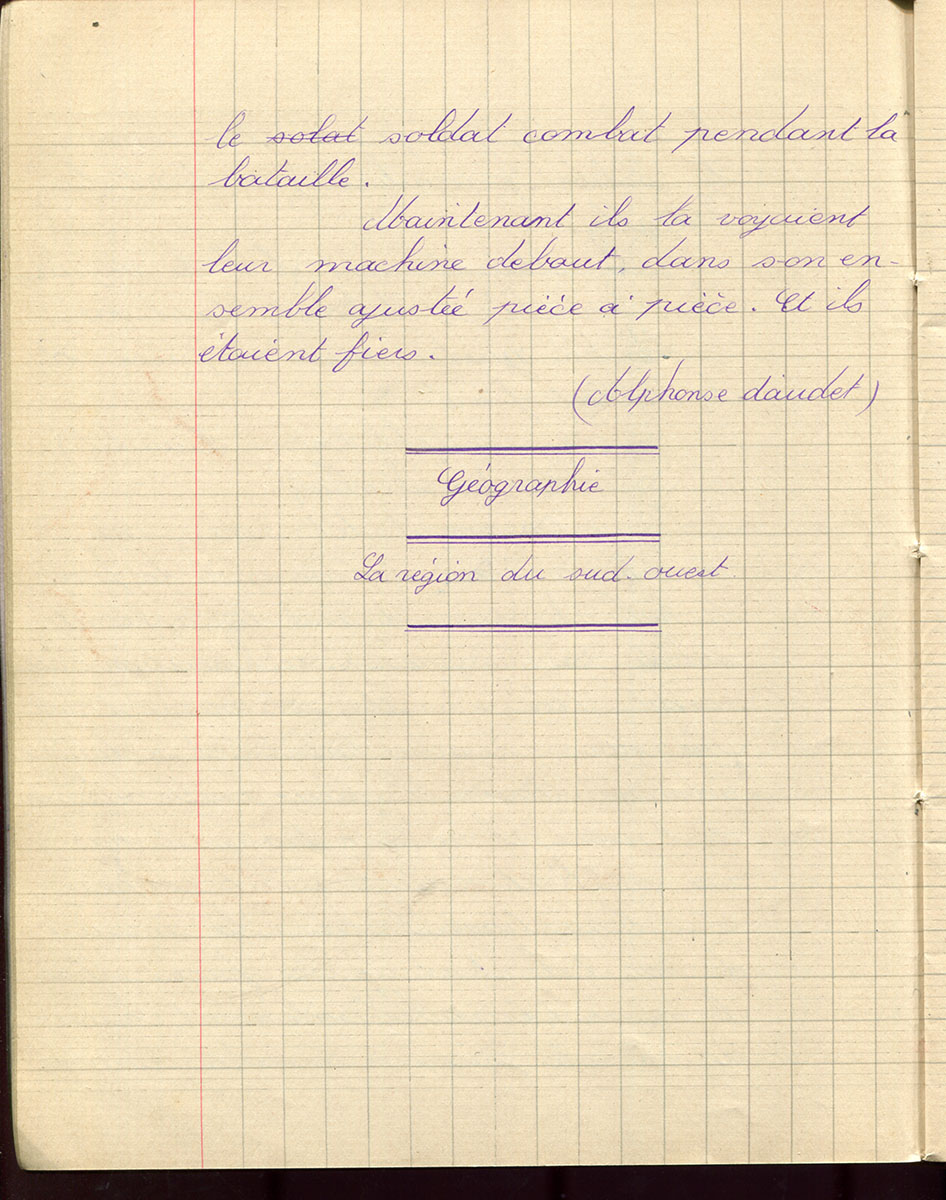 le solat soldat combat pendant la
bataille.
Maintenant ils la voyaient
leur machine debout, dans son en-
semble ajustéé pièce à pièce. Et ils
étaient fiers.
(Alphonse daudet)
Géographie
La région du sud-ouest.